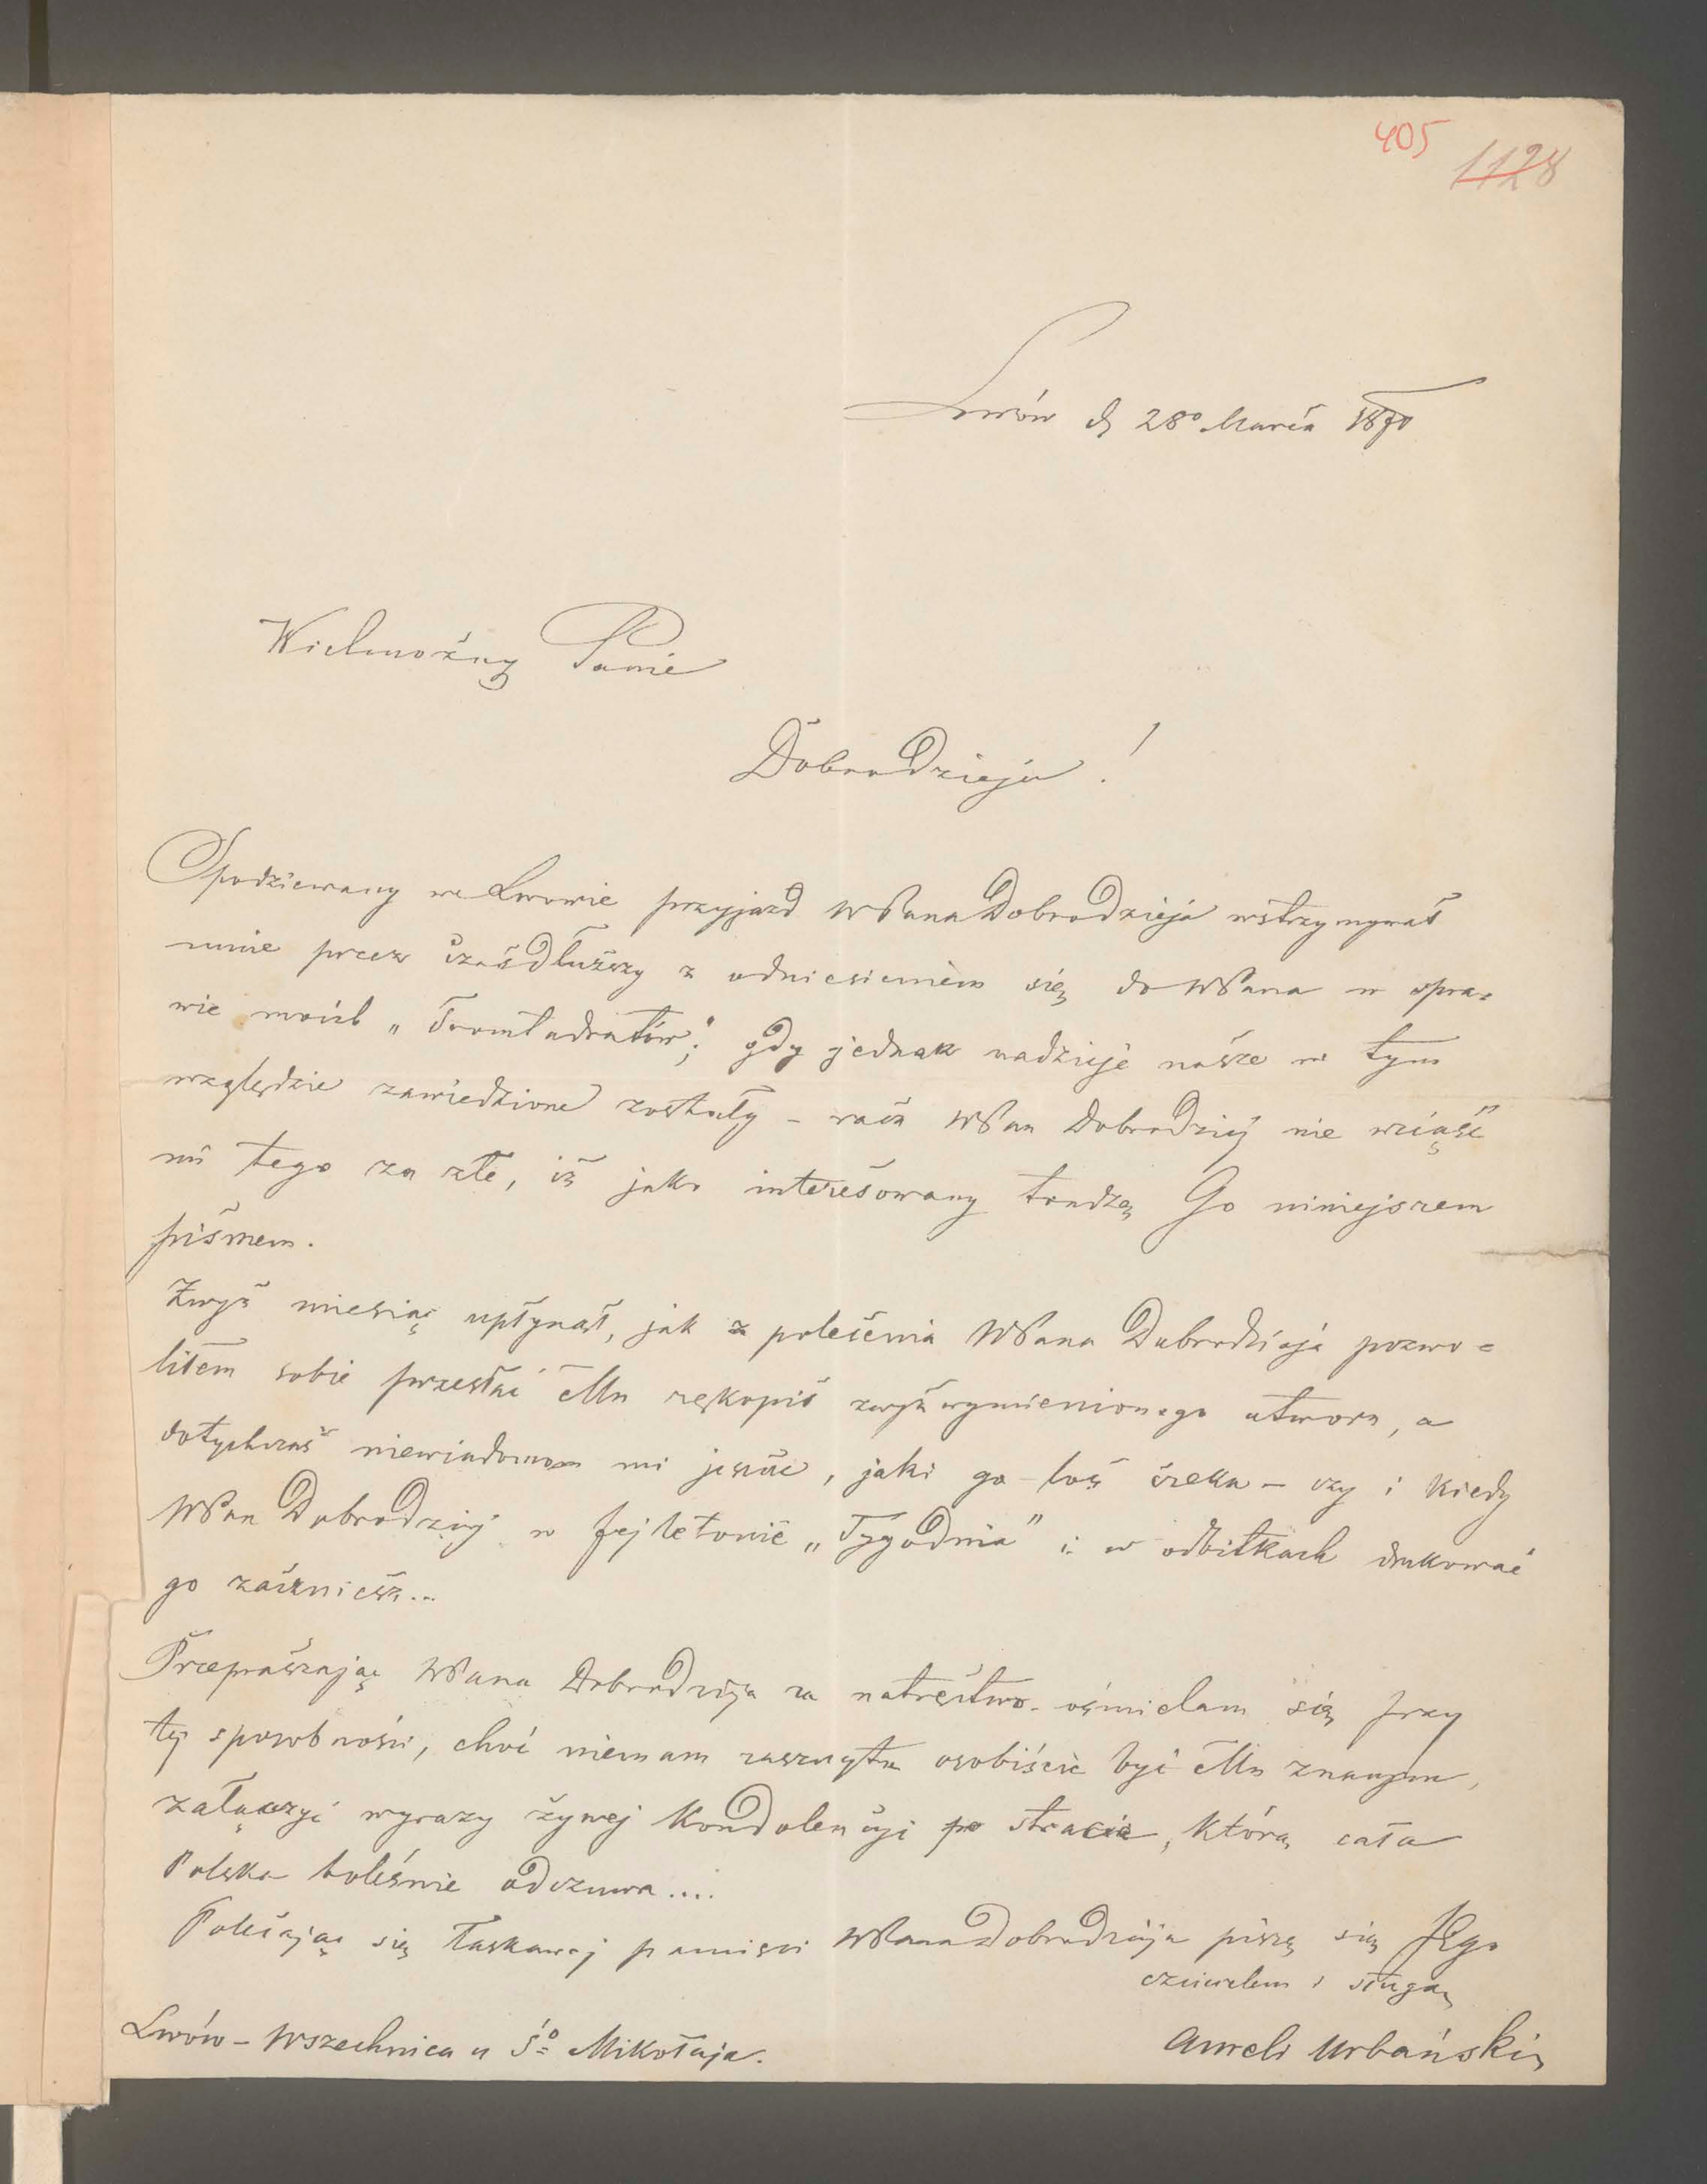 405
1128
Lwów d 28º Marca 1870
Wielmożny Panie
Dobrodzieju!
Spodziewany we Lwowie przyjazd WPana Dobrodzieja wstrzymywał
mnie przez czas dłuższy z odniesieniem się do WPana w spra=
wie moich „Dramatów;" gdy jednak nadzieje nasze w tym
względzie zawiedzione zostały – racz WPan Dobrodziej nie wziąść
mi tego za złe, iż jako interesowany trudzę Go niniejszem
pismem.
Zwyż miesiąc upłynął, jak z polecenia WPana Dobrodzieja pozwo=
liłem sobie przesłać Mu rękopis zwyż wymienionego utworu, a
dotychczas niewiadomem mi jeszcze, jaki go los czeka – czy i kiedy
WPan Dobrodziej w fejletonie „Tygodnia" i w odbitkach drukować
go zaczniesz...
Przepraszając WPana Dobrodzieja za natręctwo – ośmielam się przy
tej sposobności, choć niemam zaszczytu osobiście być Mu znanym,
załączyć wyrazy żywej kondolencyi po stracie, którą cała
Polska boleśnie odczuwa....
Polecając się łaskawej pamięci WPana Dobrodzieja piszę się Jego
czcicielem i sługą
Aureli Urbański
Lwów – Wszechnica u Śº Mikołaja.